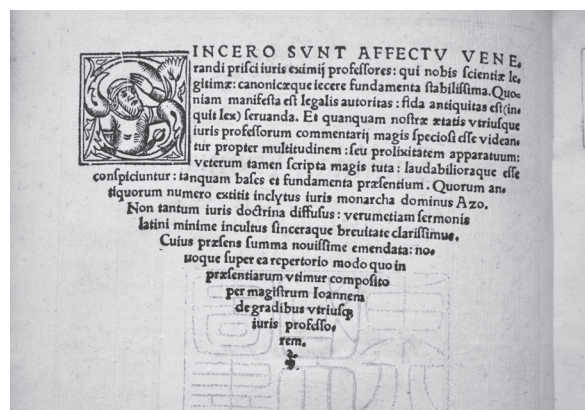 SINCERO SVNT AFFECTV VENE⸗
randi prisci iuris eximij professores: qui nobis scientiæ le⸗
gitimæ: canonicæque iecere fundamenta stabilissima. Quo⸗
niam manifesta est legalis autoritas: fida antiquitas est (in⸗
quit lex) seruanda. Et quanquam nostræ ætatis vtriusque
iuris professorum commentarij magis speciosi esse videan⸗
tur propter multitudinem: seu prolixitatem apparatuum:
veterum tamen scripta magis tuta: laudabilioraque esse
conspiciuntur: tanquam bases et fundamenta præsentium. Quorum an⸗
tiquorum numero extitit inclytus iuris monarcha dominus Azo.
Non tantum iuris doctrina diffusus: verumetiam sermonis
latini minime incultus sinceraque breuitate clarissimus.
Cuius præsens summa nouissime emendata: no⸗
uoque super ea repertorio modo quo in
præsentiarum vtimur composito
per magistrum Ioannem
de gradibus vtriusq;
iuris professo⸗
rem.